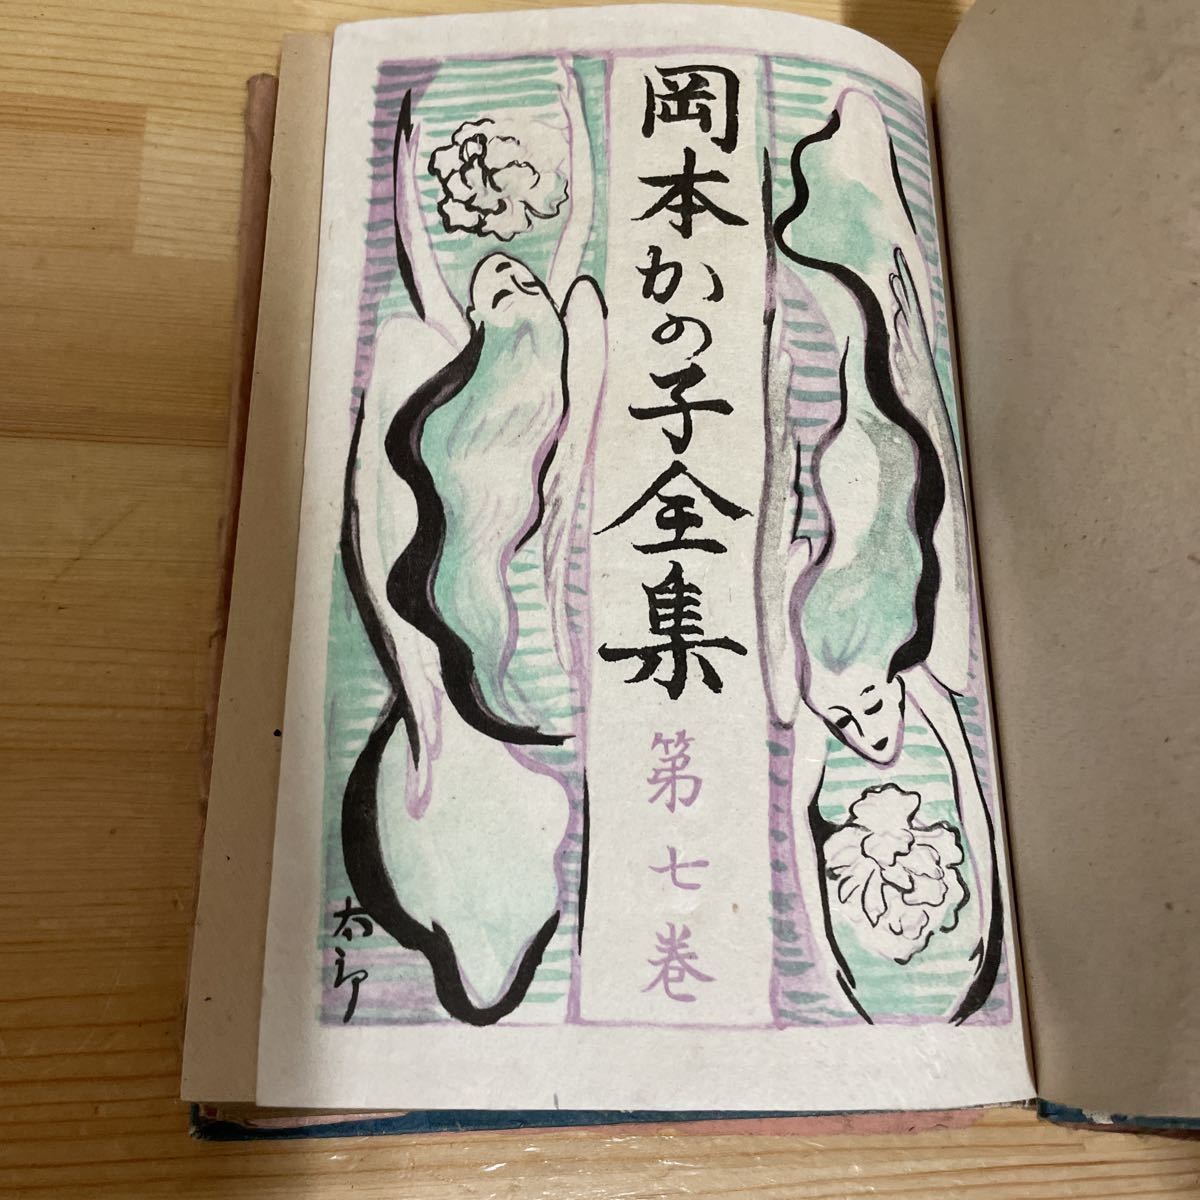 岡本かの子全集
第七巻
太郎